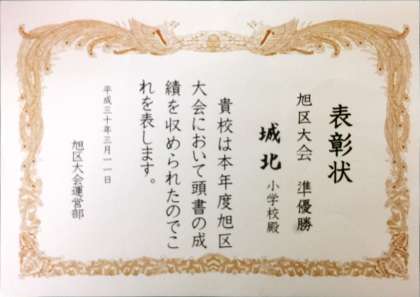 表彰状
旭区大会 準優勝
城北 小学校殿
貴校は本年度旭区
大会において頭書の成
績を収められたのでこ
れを表します。
平成三十年三月一一日
旭区大会運営部